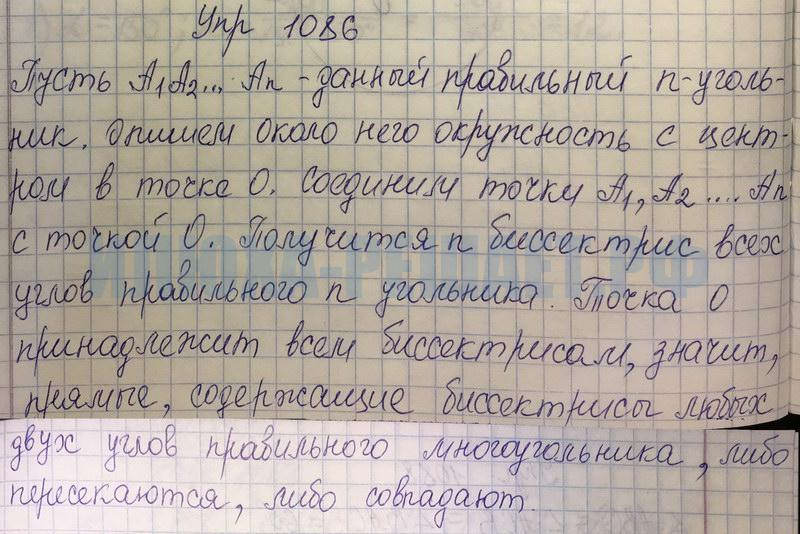 Упр 1086
Пусть A₁A₂... Aₙ - данный правильный n-уголь-
ник. Опишем около него окружность с цент-
ром в точке O. Соединим точки A₁, A₂ .... Aₙ
с точкой O. Получится n биссектрис всех
углов правильного n угольника. Точка O
принадлежит всем биссектрисам, значит,
прямые, содержащие биссектрисы любых
двух углов правильного многоугольника, либо
пересекаются, либо совпадают.